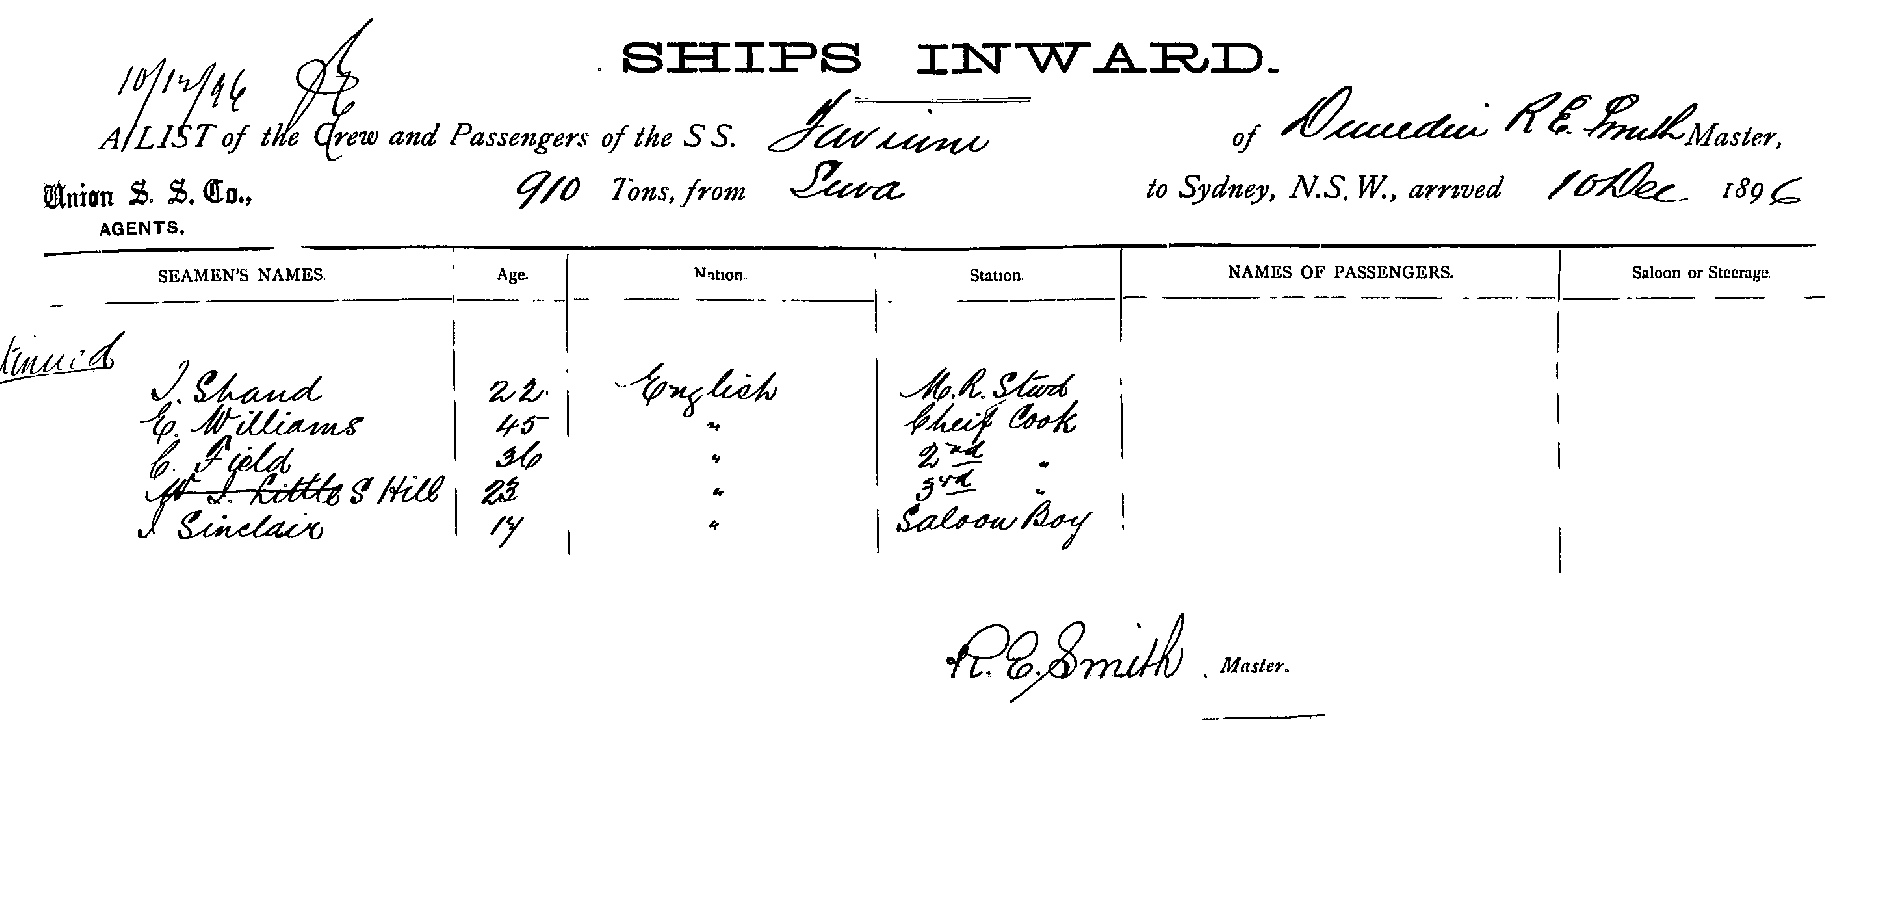 SHIPS INWARD.
10/12/96
A LIST of the Crew and Passengers of the S S. Taviuni of Dunedin R E. Smith Master,
Union S. S. Co., 910 Tons, from Suva to Sydney, N.S.W., arrived 10 Dec 1896
AGENTS.
SEAMEN'S NAMES. Age. Nation. Station. NAMES OF PASSENGERS. Saloon or Steerage.
tinued
J. Shand 22 English M.R. Stwd
E. Williams 45 " Cheif Cook
C. Field 36 " 2nd "
W. J. Little S Hill 23 " 3rd "
J Sinclair 17 " Saloon Boy
R. E. Smith Master.